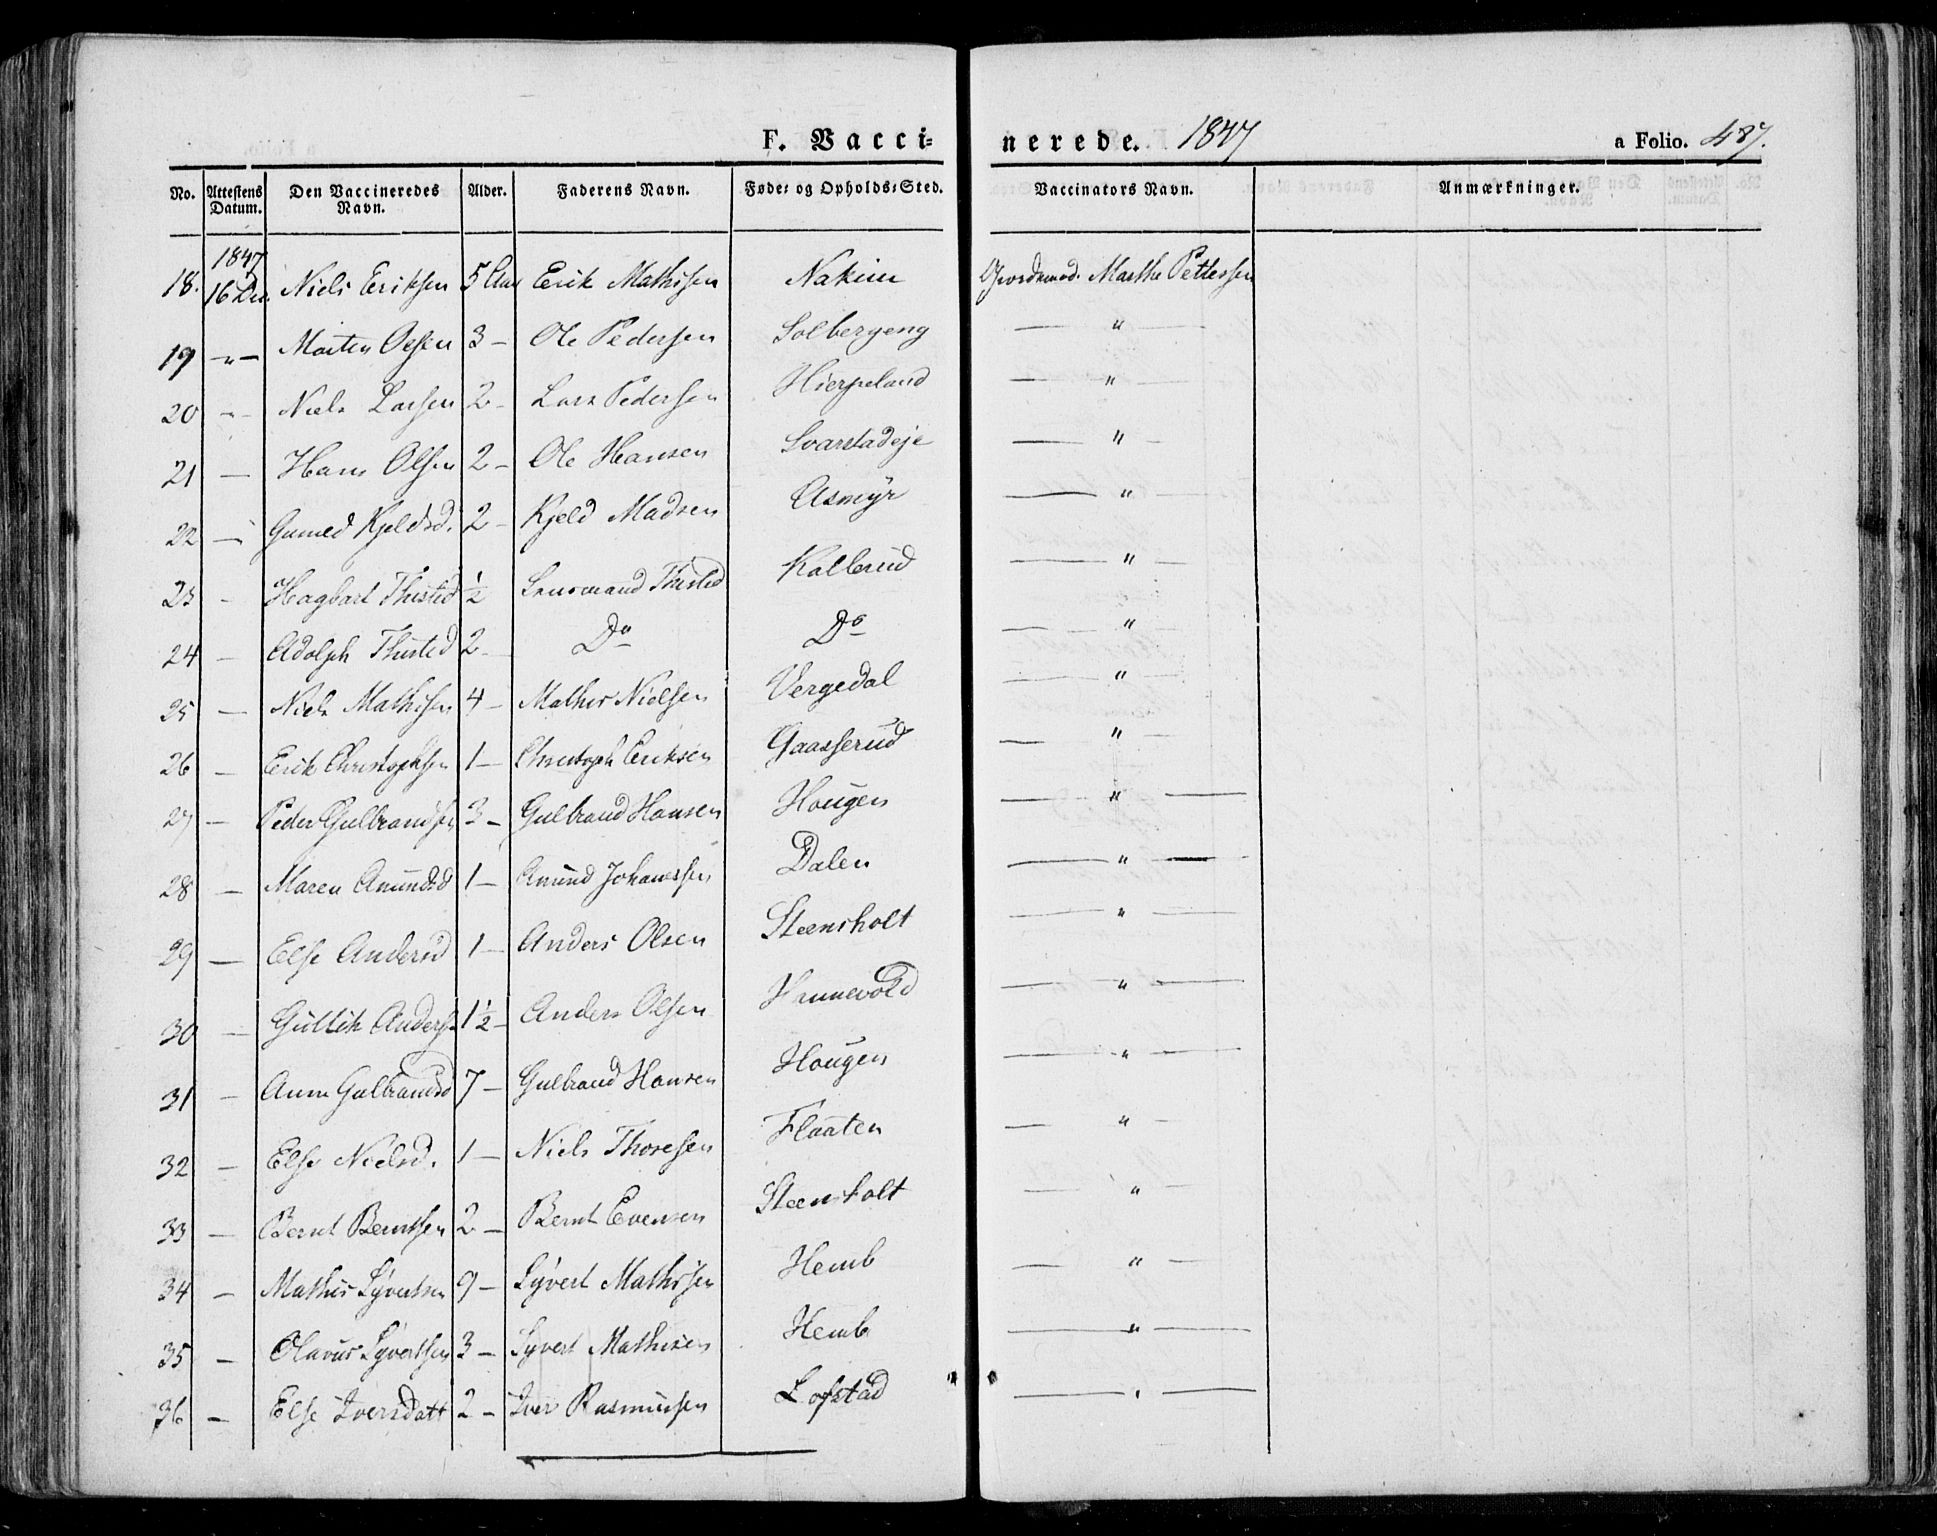 F. Vaccinerede. 1847 a Folio. 487.
No. Attestens Datum. Den Vaccineredes Navn. Alder. Faderens Navn. Føde- og Opholds-Sted. Vaccinators Navn. Anmærkninger.
1847
18. 16 Dec. Niels Eriksen 5 Aar Erik Mathisen Nakim Jordemod. Marthe Pettersen
19 -"- Morten Olsen 3 - Ole Pedersen Solbergeng — " —
20 -"- Niels Larsen 2 - Lars Pedersen Hierpeland — " —
21 — Hans Olsen 2 - Ole Hansen Svarstadeje — " —
22 — Gunild Kjeldsd. 2 - Kjeld Madsen Asmyr — " —
23 - Hagbart Thisted ½ Lensmand Thisted Kallerud — " —
24 — Adolph Thisted 2 - Do Do — " —
25 — Niels Mathisen 4 - Mathis Nielsen Vergedal — " —
26 — Erik Christophsen 1 — Christoph Eriksen Gaasserud — " —
27 — Peder Gulbrandsen 3 - Gulbrand Hansen Hougen — " —
28 — Maren Amundsd 1 — Amund Johanssen Dalen — " —
29 — Else Andersd 1 — Anders Olsen Steensholt — " —
30 — Gullik Anders 1½ - Anders Olsen Hunnevold — " —
31 — Anne Gulbrandsd 7 — Gulbrand Hansen Hougen — " —
32 — Else Nielsd. 1 — Niels Thoresen Flaaten — " —
33 — Bernt Berntsen 2 — Bernt Evensen Steensholt — " —
34 — Mathis Syvertsen 9 — Syvert Mathisen Hemb — " —
35 — Olavus Syvertsen 3 — Syvert Mathisen Hemb — " —
36 — Else Iversdatt 2 — Iver Rasmussen Lofstad — " —